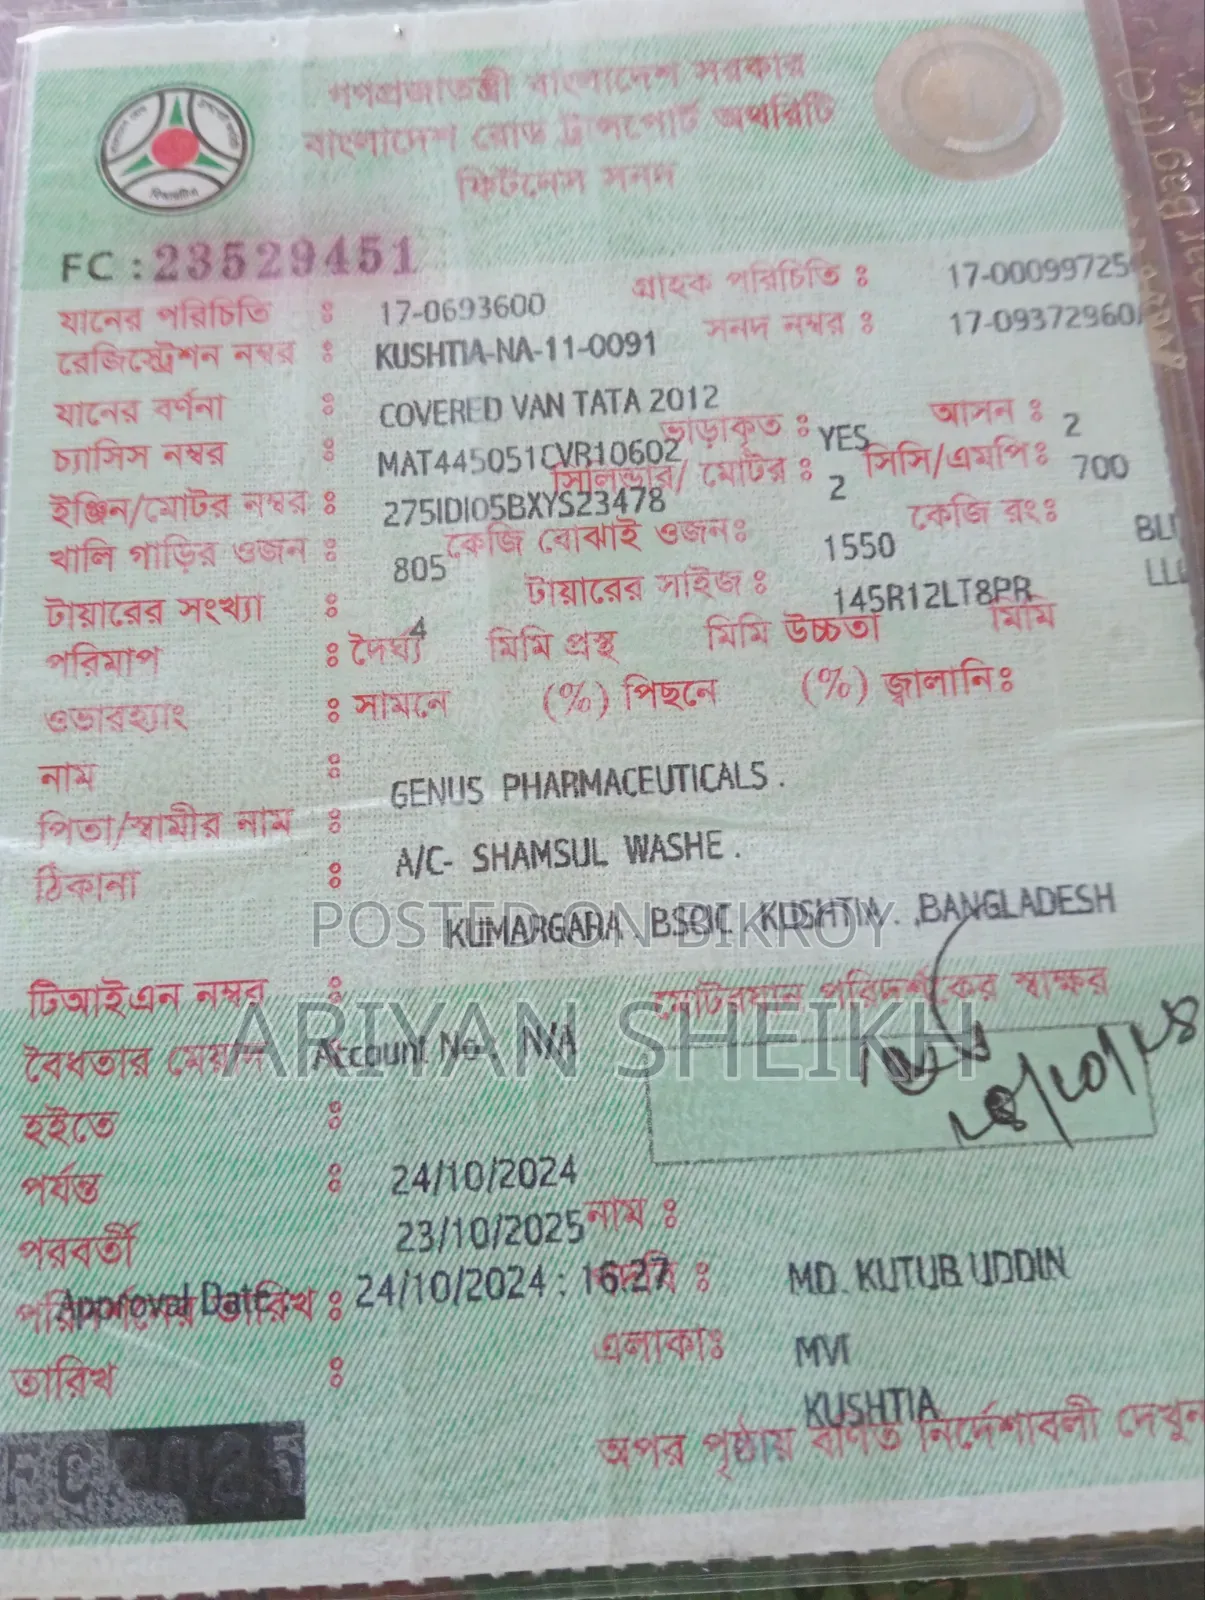 গণপ্রজাতন্ত্রী বাংলাদেশ সরকার
বাংলাদেশ রোড ট্রান্সপোর্ট অথরিটি
ফিটনেস সনদ
FC : 23529451
যানের পরিচিতি : 17-0693600 গ্রাহক পরিচিতি : 17-00099725
রেজিস্ট্রেশন নম্বর : KUSHTIA-NA-11-0091 সনদ নম্বর : 17-09372960
যানের বর্ণনা : COVERED VAN TATA 2012
চ্যাসিস নম্বর : MAT445051CVR10602 ভাড়াকৃত : YES আসন : 2
ইঞ্জিন/মোটর নম্বর : 275IDI05BXYS23478 সিলিন্ডার/ মোটর : 2 সিসি/এমপি: 700
খালি গাড়ির ওজন : 805 কেজি বোঝাই ওজন: 1550 কেজি রং:
টায়ারের সংখ্যা : 4 টায়ারের সাইজ : 145R12LT8PR
পরিমাপ : দৈর্ঘ্য মিমি প্রস্থ মিমি উচ্চতা মিমি
ওভারহ্যাং : সামনে (%) পিছনে (%) জ্বালানি:
নাম : GENUS PHARMACEUTICALS .
পিতা/স্বামীর নাম : A/C- SHAMSUL WASHE .
ঠিকানা : KUMARGARA BSCIC KUSHTIA. ,BANGLADESH
POSTED ON BIKROY
ARIYAN SHEIKH
টিআইএন নম্বর : মোটরযান পরিদর্শকের স্বাক্ষর
বৈধতার মেয়াদ Account No N/A
হইতে : 24/10/2024
পর্যন্ত : 23/10/2025 নাম : MD. KUTUB UDDIN
পরবর্তী
পরিদর্শনের তারিখ : Approval Date : 24/10/2024 : 16:27 : MVI
তারিখ : এলাকা: KUSHTIA
অপর পৃষ্ঠায় বর্ণিত নির্দেশাবলী দেখুন
FC 2025